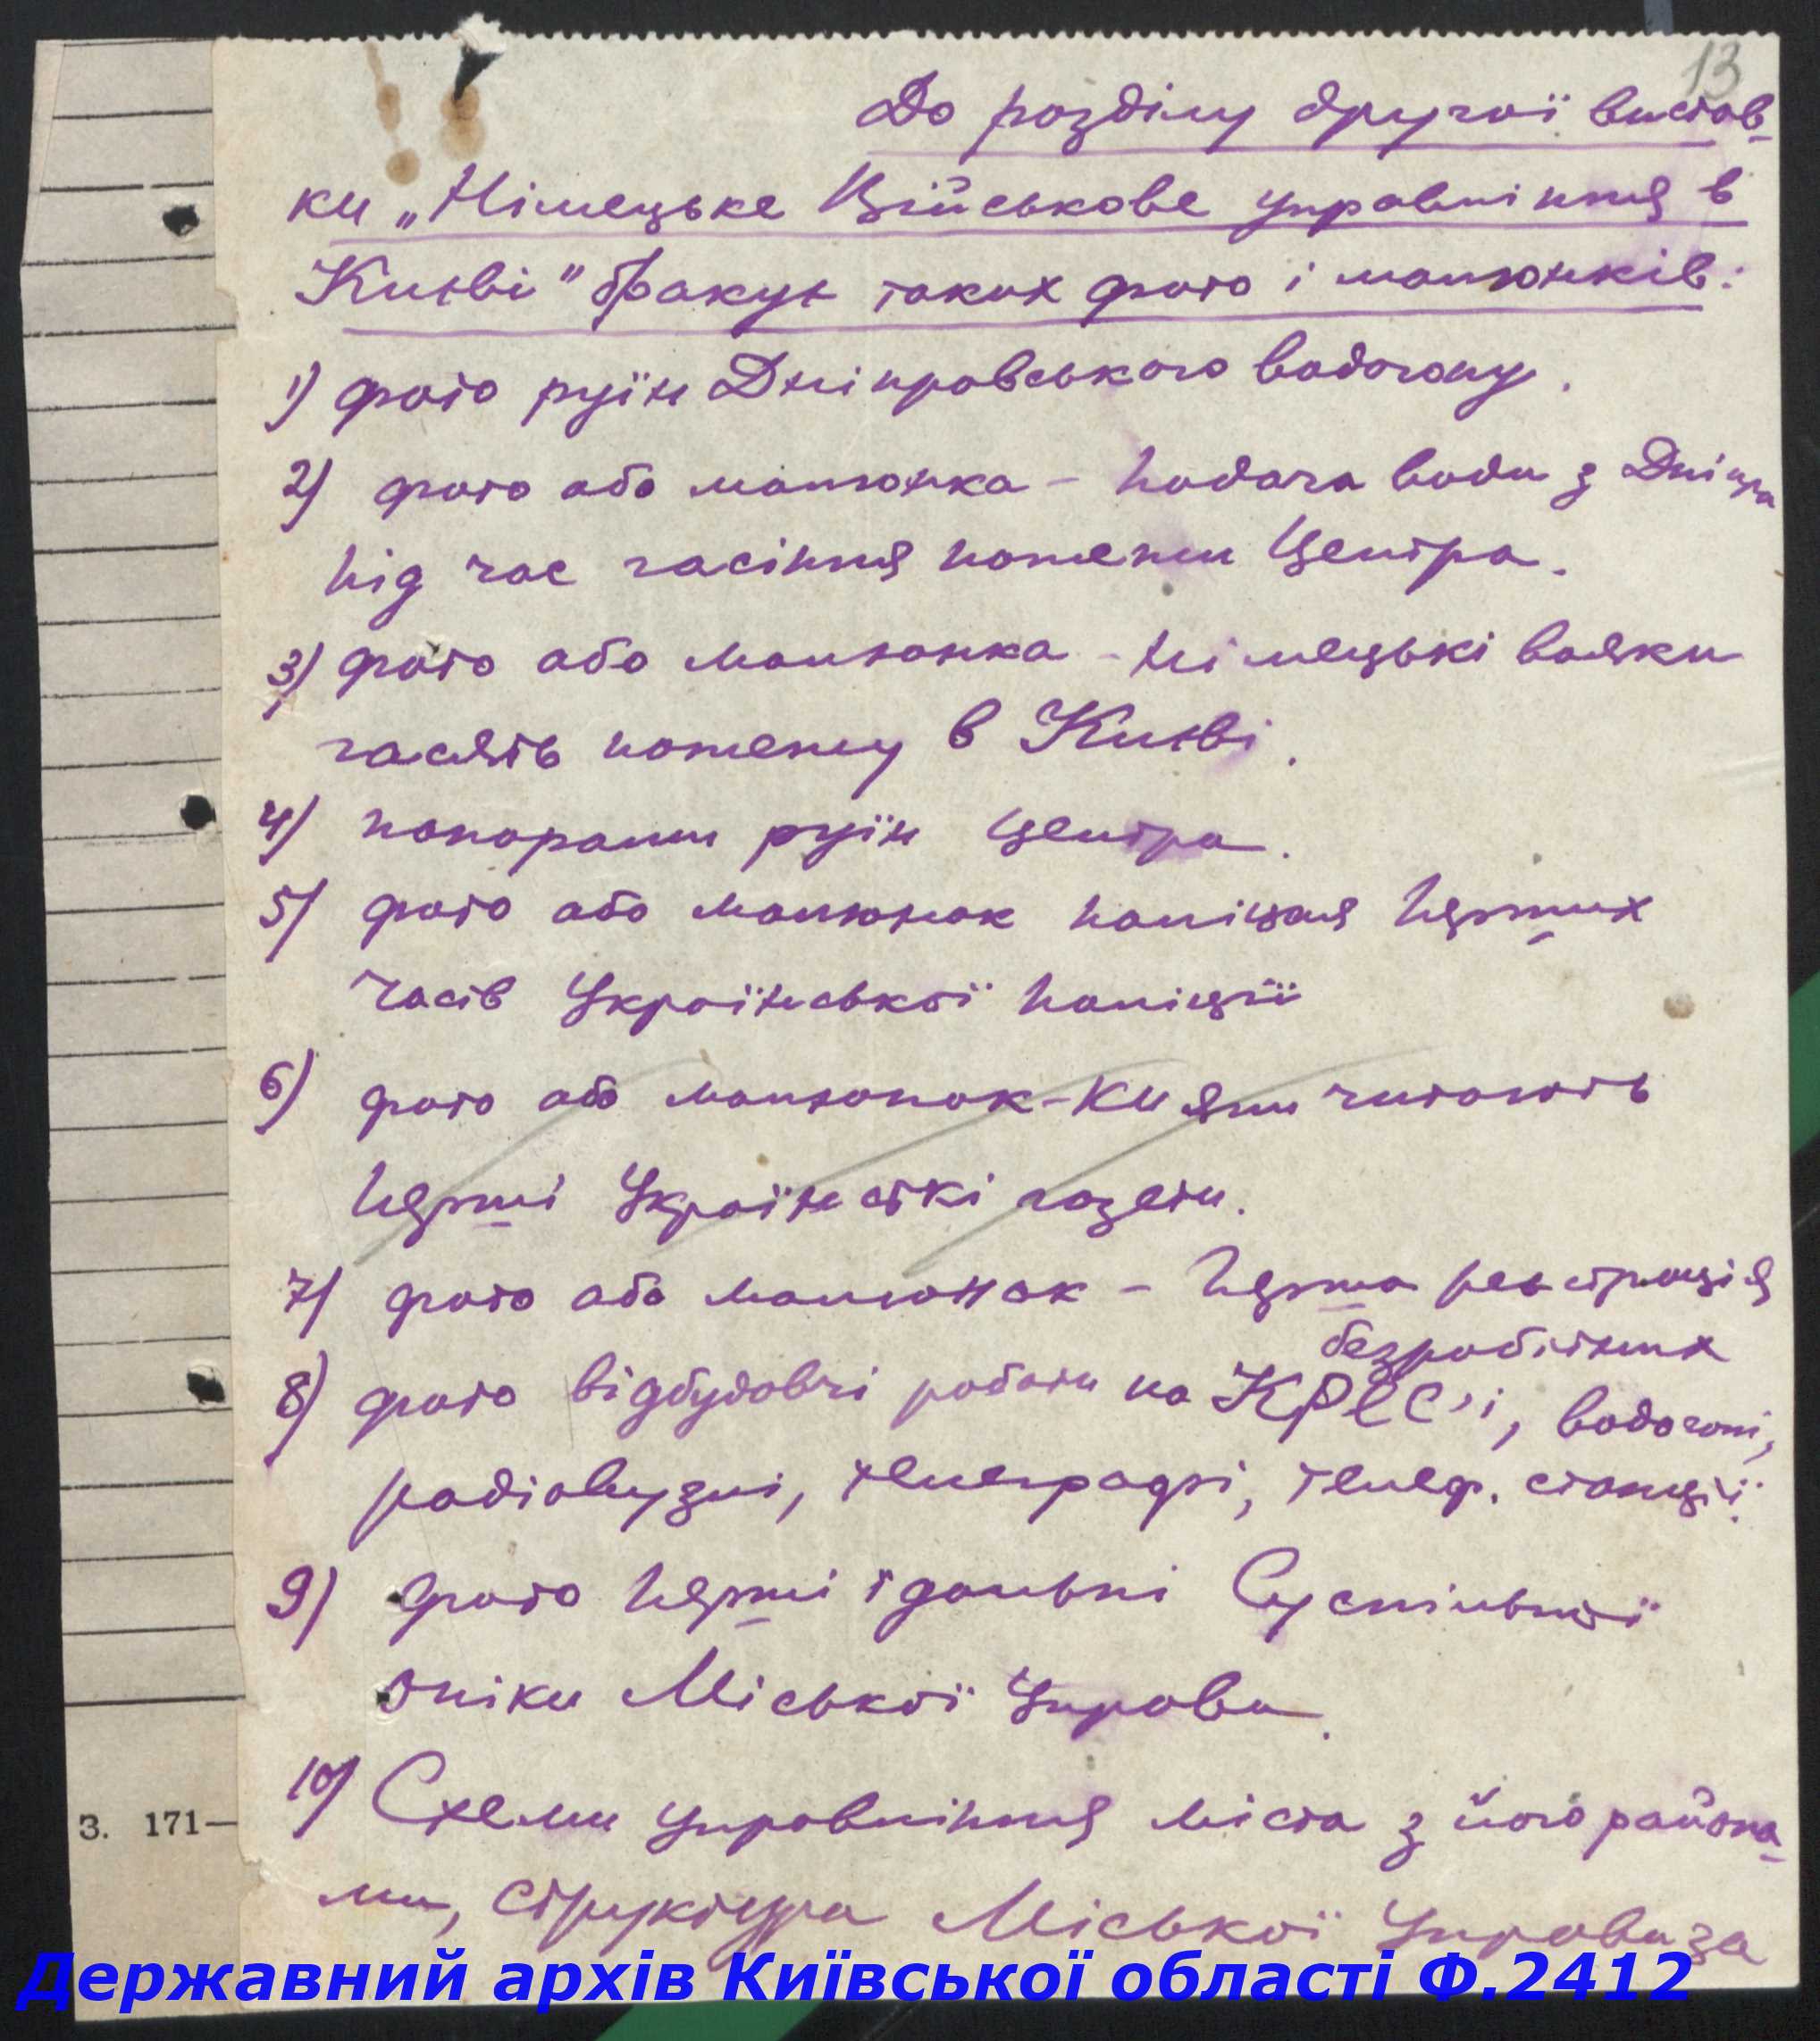 13
До розділу другої вистав-
ки „Німецьке Військове управління в
Києві" бракує таких фото і малюнків:
1) фото руїн Дніпровського водогону.
2) фото або малюнка - подача води з Дніпра
під час гасіння пожежи Центра.
3) фото або малюнка - німецькі вояки
гасять пожежу в Києві.
4) панорами руїн Центра.
5) фото або малюнок поліцая перших
часів Української поліції
6) фото або малюнок - кияни читають
перші Українські газети.
7) фото або малюнок - перша реєстрація
безробітних
8) фото відбудовчі работи на КРЕС'і, водогоні,
радіовузлі, телеграфі, телеф. станції.
9) фото перші їдальні Суспільної
опіки Міської Управи.
10) Схеми управління міста з його района-
ми, структура Міської Управи за
З. 171—
Державний архів Київської області Ф.2412